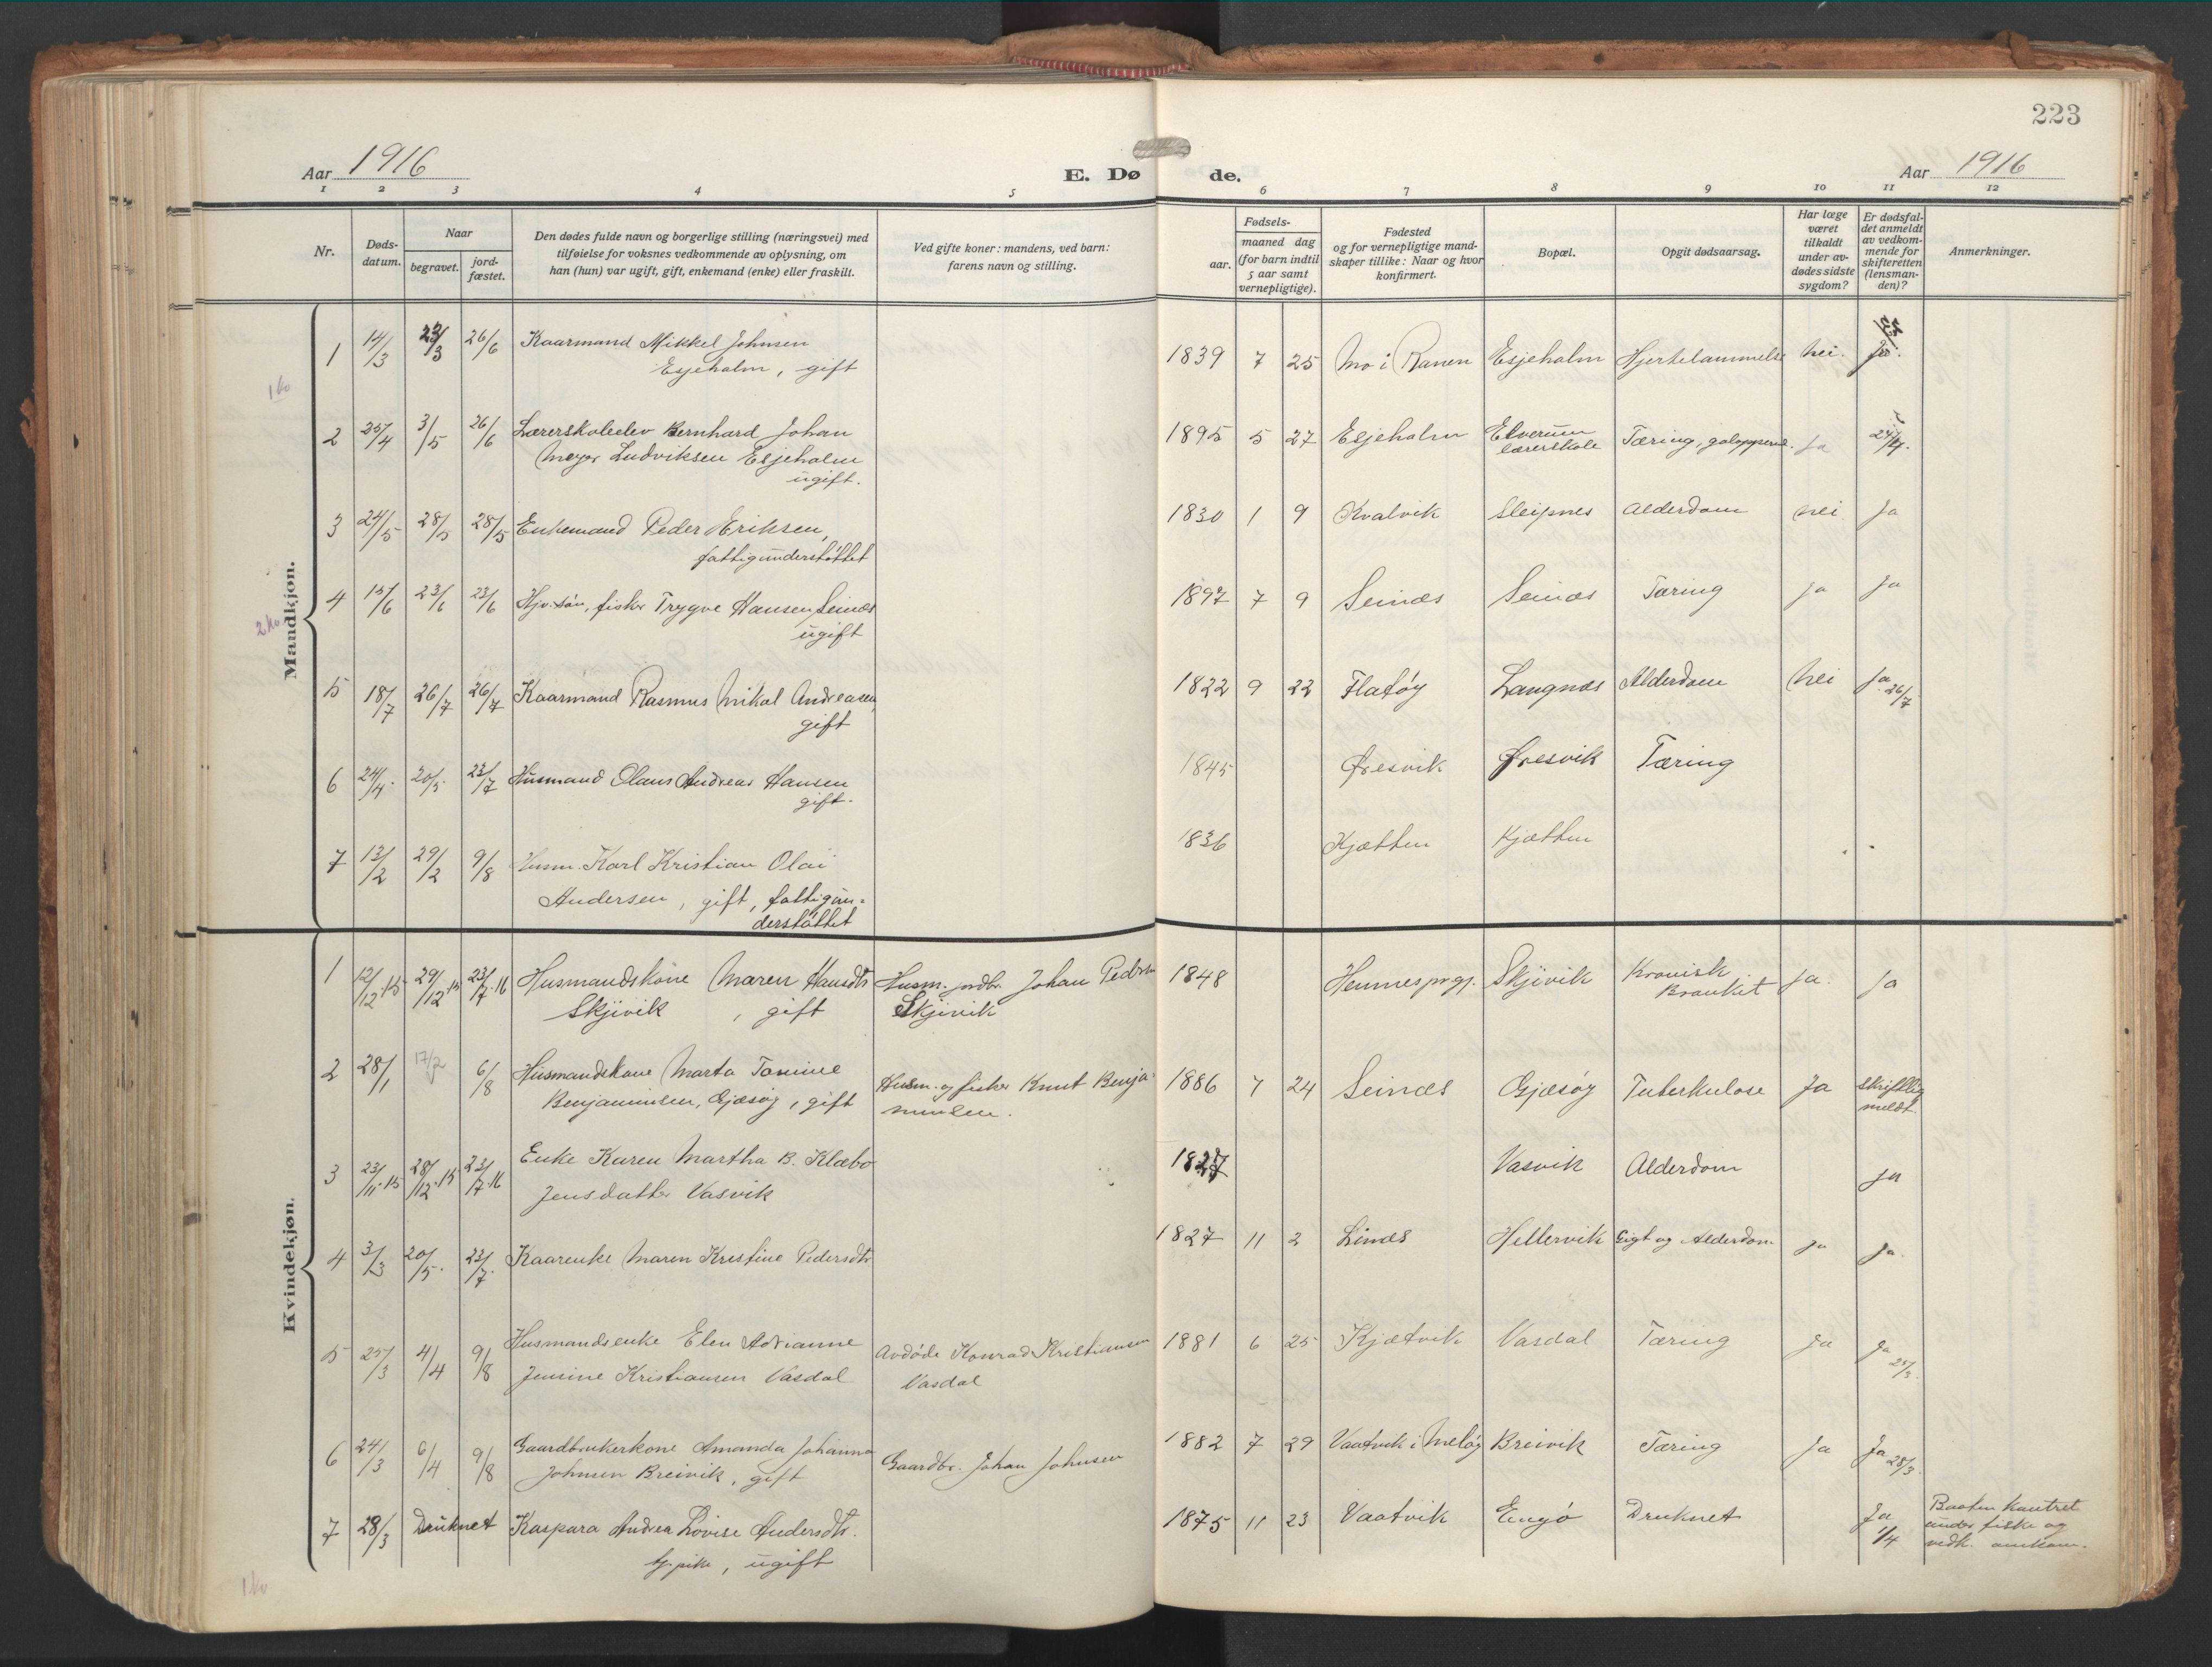 223
Aar 1916
E. Dø
de.
Aar 1916
1 2 3 4 5 6 7 8 9 10 11 12
Nr.
Døds-
datum.
Naar
begravet.
jord-
fæstet.
Den dødes fulde navn og borgerlige stilling (næringsvei) med
tilføielse for voksnes vedkommende av oplysning, om
han (hun) var ugift, gift, enkemand (enke) eller fraskilt.
Ved gifte koner: mandens, ved barn:
farens navn og stilling.
Fødsels-
aar.
maaned dag
(for barn indtil
5 aar samt
vernepligtige).
Fødested
og for vernepligtige mand-
skaper tillike: Naar og hvor
konfirmert.
Bopæl.
Opgit dødsaarsag.
Har læge
været
tilkaldt
under av-
dødes sidste
sygdom?
Er dødsfal-
det anmeldt
av vedkom-
mende for
skifteretten
(lensman-
den)?
Anmerkninger.
Mandkjøn.
1 14/3 23/3 26/6 Kaarmand Mikkel Johnsen 1839 7 25 Mo i Ranen Esjeholm Hjertelammelse nei. Ja.
Esjeholm, gift
2 25/4 3/5 26/6 Lærerskoleelev Bernhard Johan 1895 5 27 Esjeholm Elverum Tæring, galopperend. ja 27/4.
Meyer Ludviksen Esjeholm lærerskole
ugift.
3 24/5 28/5 28/5 Enkemand Peder Eriksen, 1830 1 9 Kvalvik Sleipnes Alderdom nei. Ja
fattigunderstøttet
4 15/6 23/6 23/6 Hjv. søn, fisker Trygve Hansen Seines 1897 7 9 Seines Seines Tæring ja Ja
ugift
5 18/7 26/7 26/7 Kaarmand Rasmus Mikal Andreasen, 1822 9 22 Flatøy Langnes Alderdom Nei Ja 26/7
gift
6 24/4 20/5 23/7 Husmand Olaus Andreas Hansen 1845 Øresvik Øresvik Tæring
gift.
7 13/2 29/2 9/8 Husm. Karl Kristian Olai 1836 Kjætten Kjætten
Andersen, gift, fattigun-
derstøttet
Kvindekjøn.
1 12/12.15 29/12.15 23/7.16 Husmandskone Maren Hansdtr Husm. jordbr. Johan Peders. 1848 Hemnes prgj. Skjivik Kronisk Ja. Ja
Skjivik, gift Skjivik Bronkit
2 28/1 17/2 6/8 Husmandskone Marta Tomine Husm. og fisker Knut Benja- 1886 7 24 Seines Gjæsøy Tuberkulose Ja Skriftlig
Benjaminsen, Gjæsøy, gift minsen. meldt.
3 23/11.15 28/12.15 23/7.16 Enke Karen Martha B. Klæbo 1827 Vasvik Alderdom ja
Jensdatter Vasvik
4 3/3 20/5. 23/7. Kaarenke Maren Kristine Pedersdtr 1827 11 2 Lines Hellervik Gigt og Alderdom ja Ja.
5 25/3 4/4 9/8 Husmandsenke Elen Adrianne Avdøde Konrad Kristiansen 1881 6 25 Kjætvik Vasdal Tæring Ja Ja 28/3.
Jensine Kristiansen Vasdal Vasdal
6 24/3 6/4 9/8 Gaardbrukerkone Amanda Johanna Gaardbr. Johan Johnsen 1882 7 29 Vaatvik i Meløy Breivik Tæring Ja Ja 28/3.
Johnsen Breivik, gift
7 28/3 Druknet Kaspara Andrea Lovise Andersdtr. 1875 11 23 Vaatvik Engø Druknet Ja 1/4 Baaten kantret
under fiske og
pike, ugift vedk. omkom.